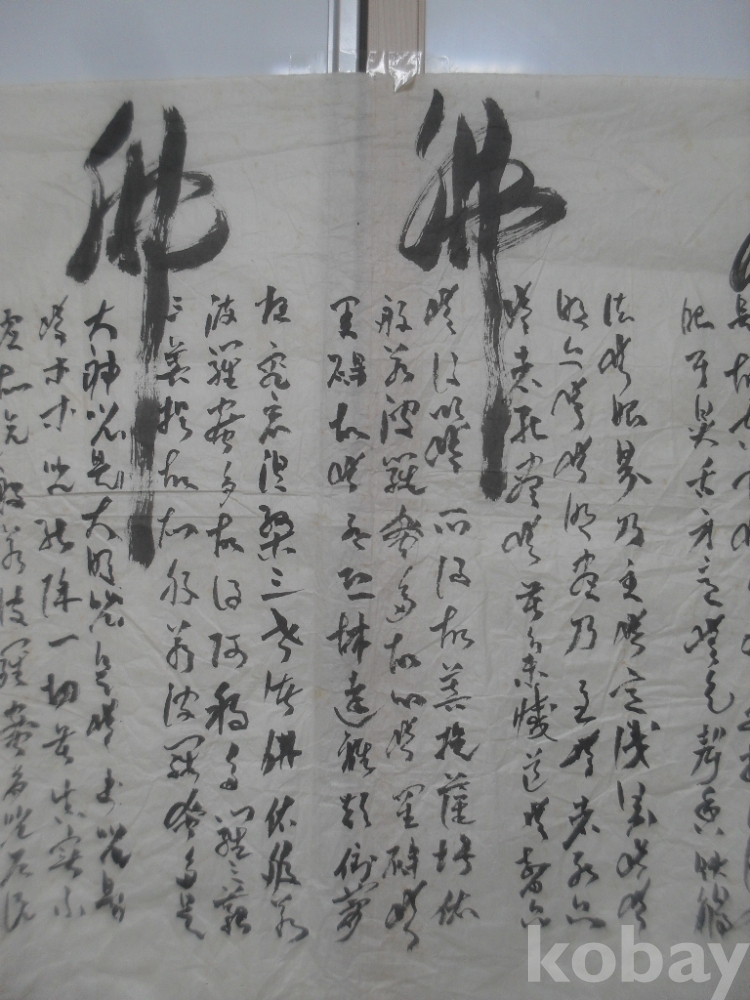 佛
佛
是故空中無
眼耳鼻舌身意無色聲香味觸
法無眼界乃至無意識界無無
明亦無無明盡乃至無老死亦
無老死盡無苦集滅道無智亦
無得以無所得故菩提薩埵依
般若波羅蜜多故心無罣碍無
罣碍故無有恐怖遠離顚倒夢
想究竟涅槃三世諸佛依般若
波羅蜜多故得阿耨多羅三藐
三菩提故知般若波羅蜜多是
大神呪是大明呪是無上呪是
無等等呪能除一切苦眞實不
虛故說般若波羅蜜多呪卽說
kobay